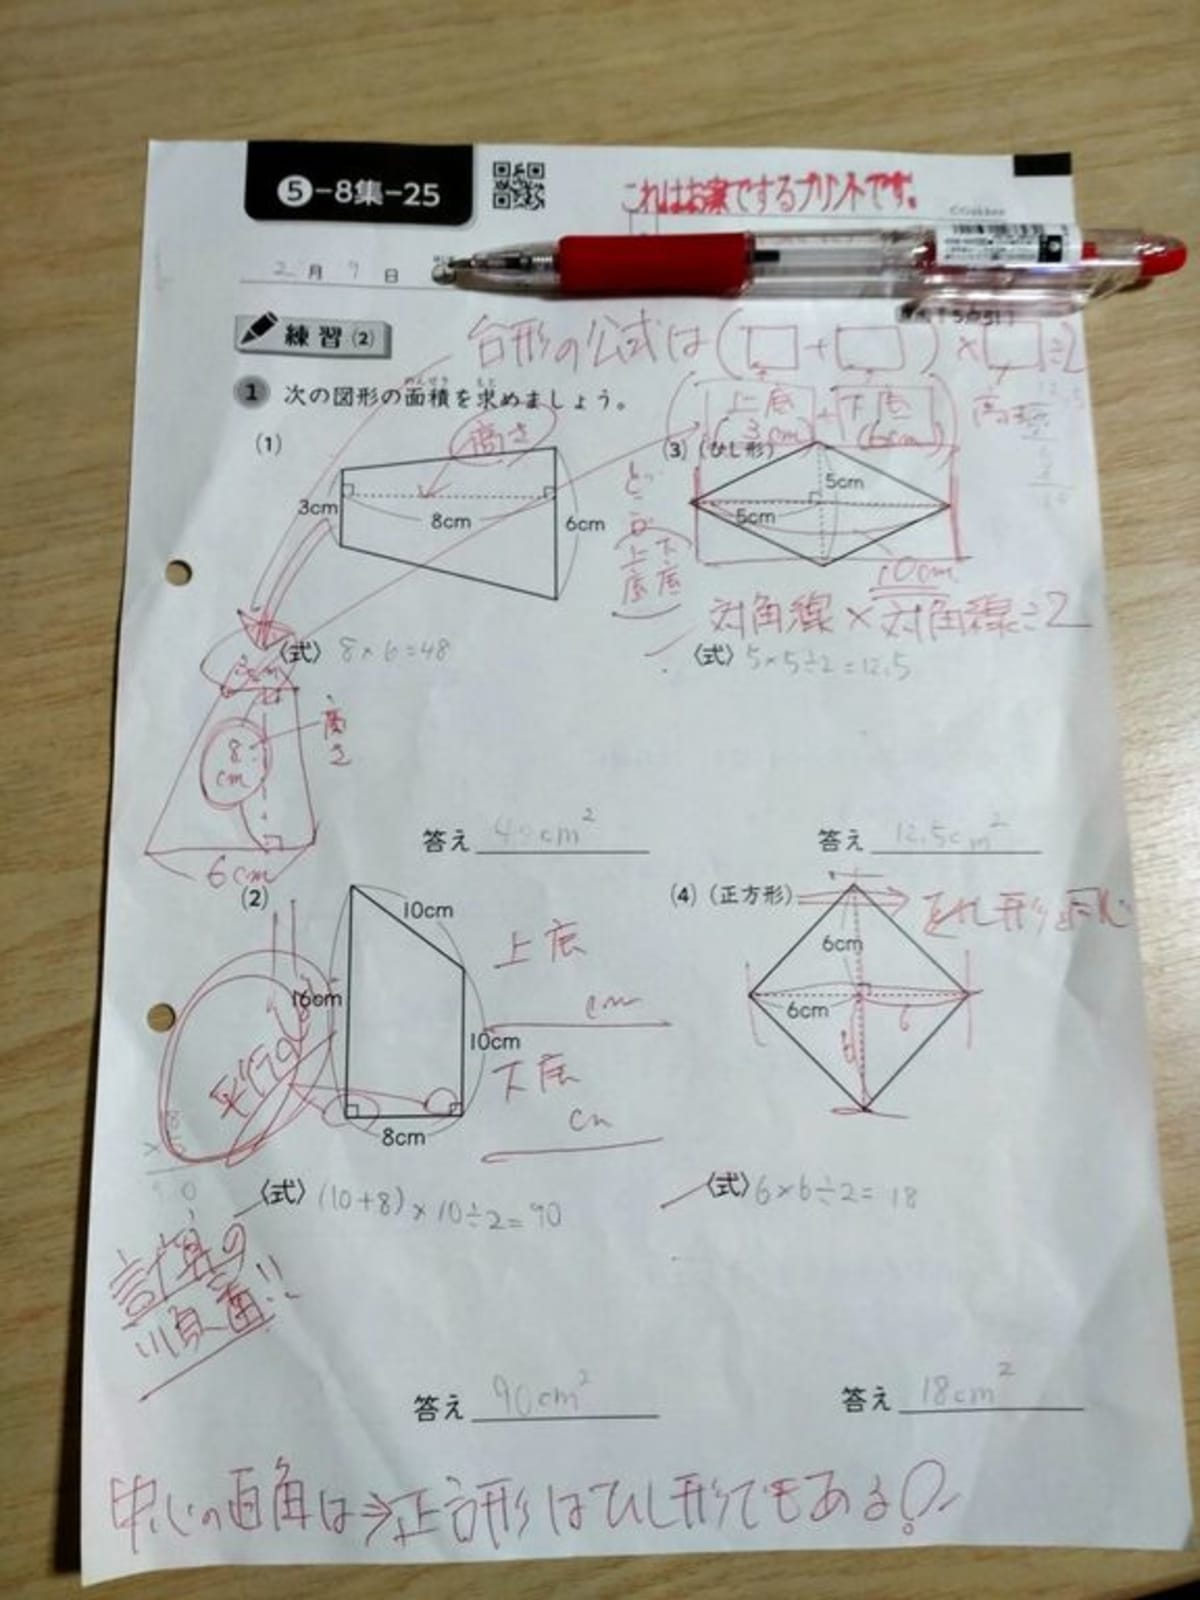 5-8集-25
これはお家でするプリントです。
2月9日
練習(2)
台形の公式は(□+□)×□÷2
1 次の図形の面積を求めましょう。
めんせき もと
(上底+下底)
(3cm) (6cm)
高さ
(1)
高さ
3cm
8cm
6cm
上底 下底
(3)(ひし形)
5cm
5cm
10cm
対角線×対角線÷2
〈式〉8×6=48
3cm
8cm
高さ
6cm
答え
〈式〉5×5÷2=12.5
答え 12.5cm²
(2)
10cm
16cm
10cm
8cm
平行
上底
cm
下底
cm
〈式〉(10+8)×10÷2=90
計算の
順番!!
答え 90cm²
(4)(正方形)
6cm
6cm
6
〈式〉6×6÷2=18
答え 18cm²
中心の直角は⇒正方形はひし形でもある